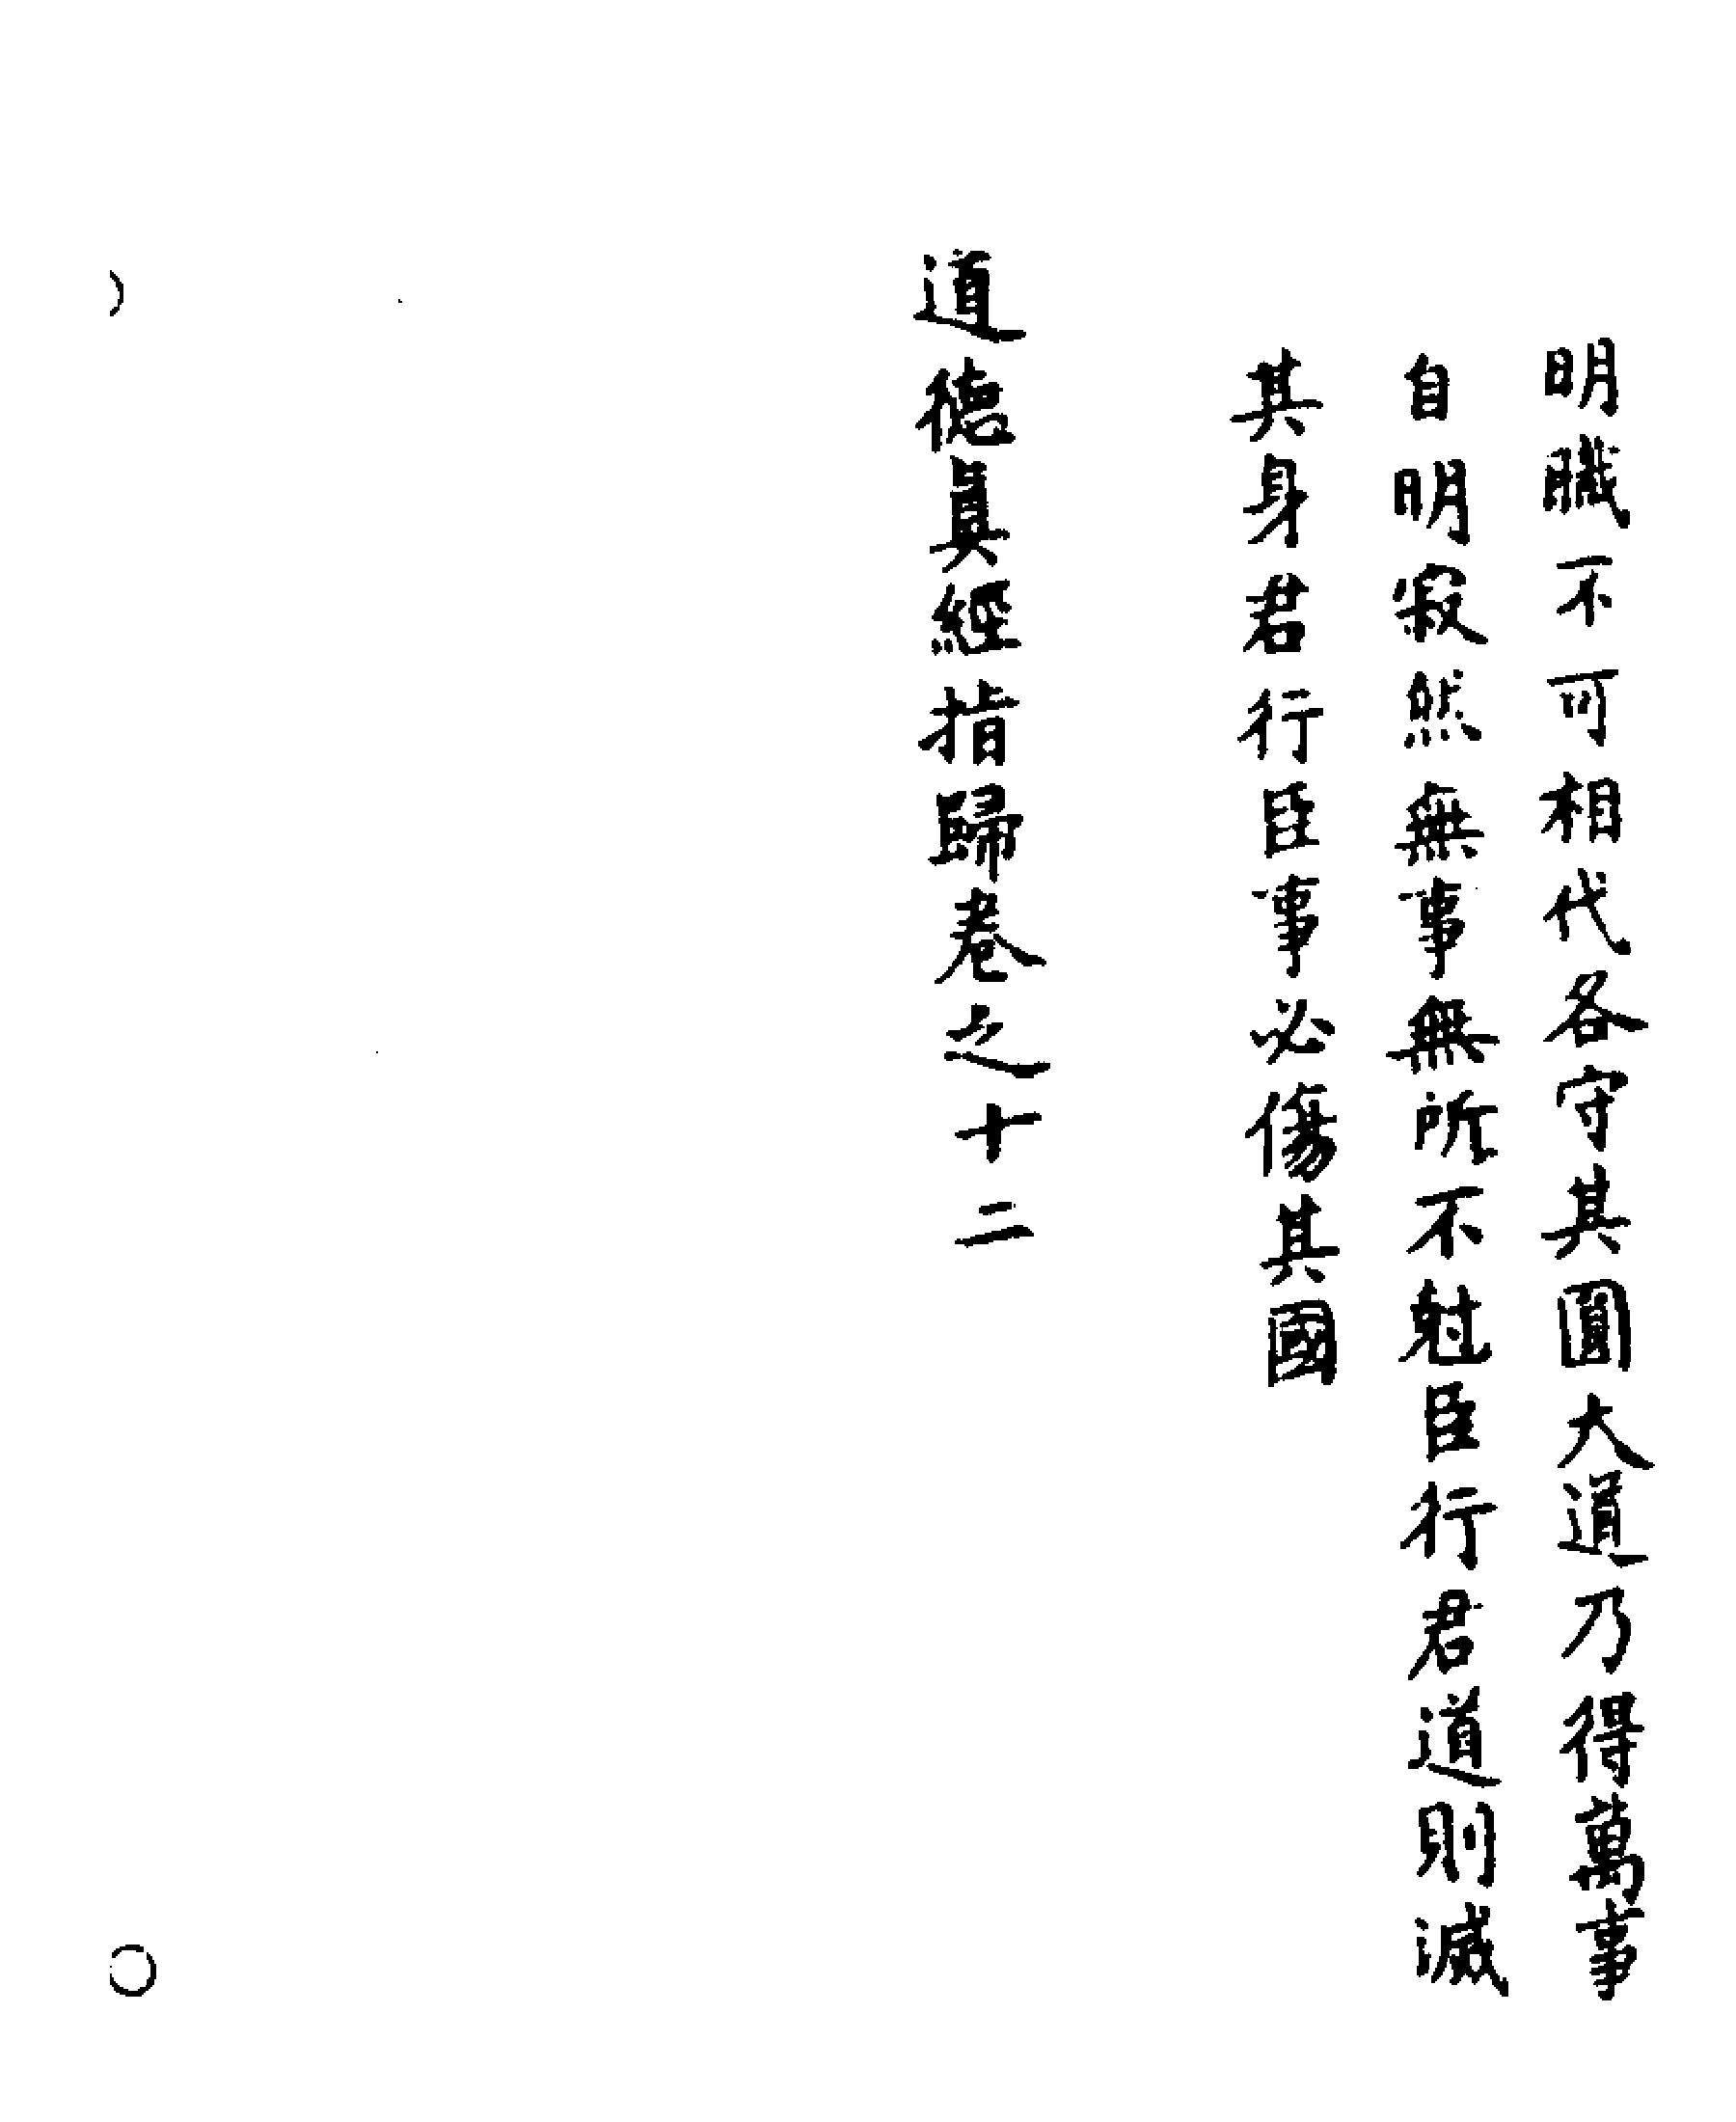 明職不可相代各守其圓大道乃得萬事
自明寂然無事無所不尅臣行君道則滅
其身君行臣事必傷其國
道德眞經指歸卷之十二